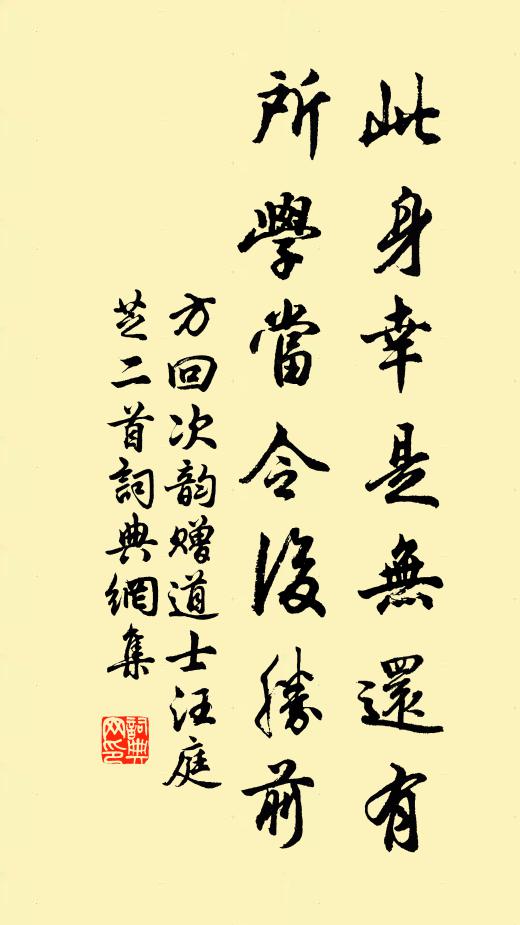 此身幸是無還有
所學當令後勝前
方回次韵赠道士汪庭
芝二首詞典網集
詞典網印